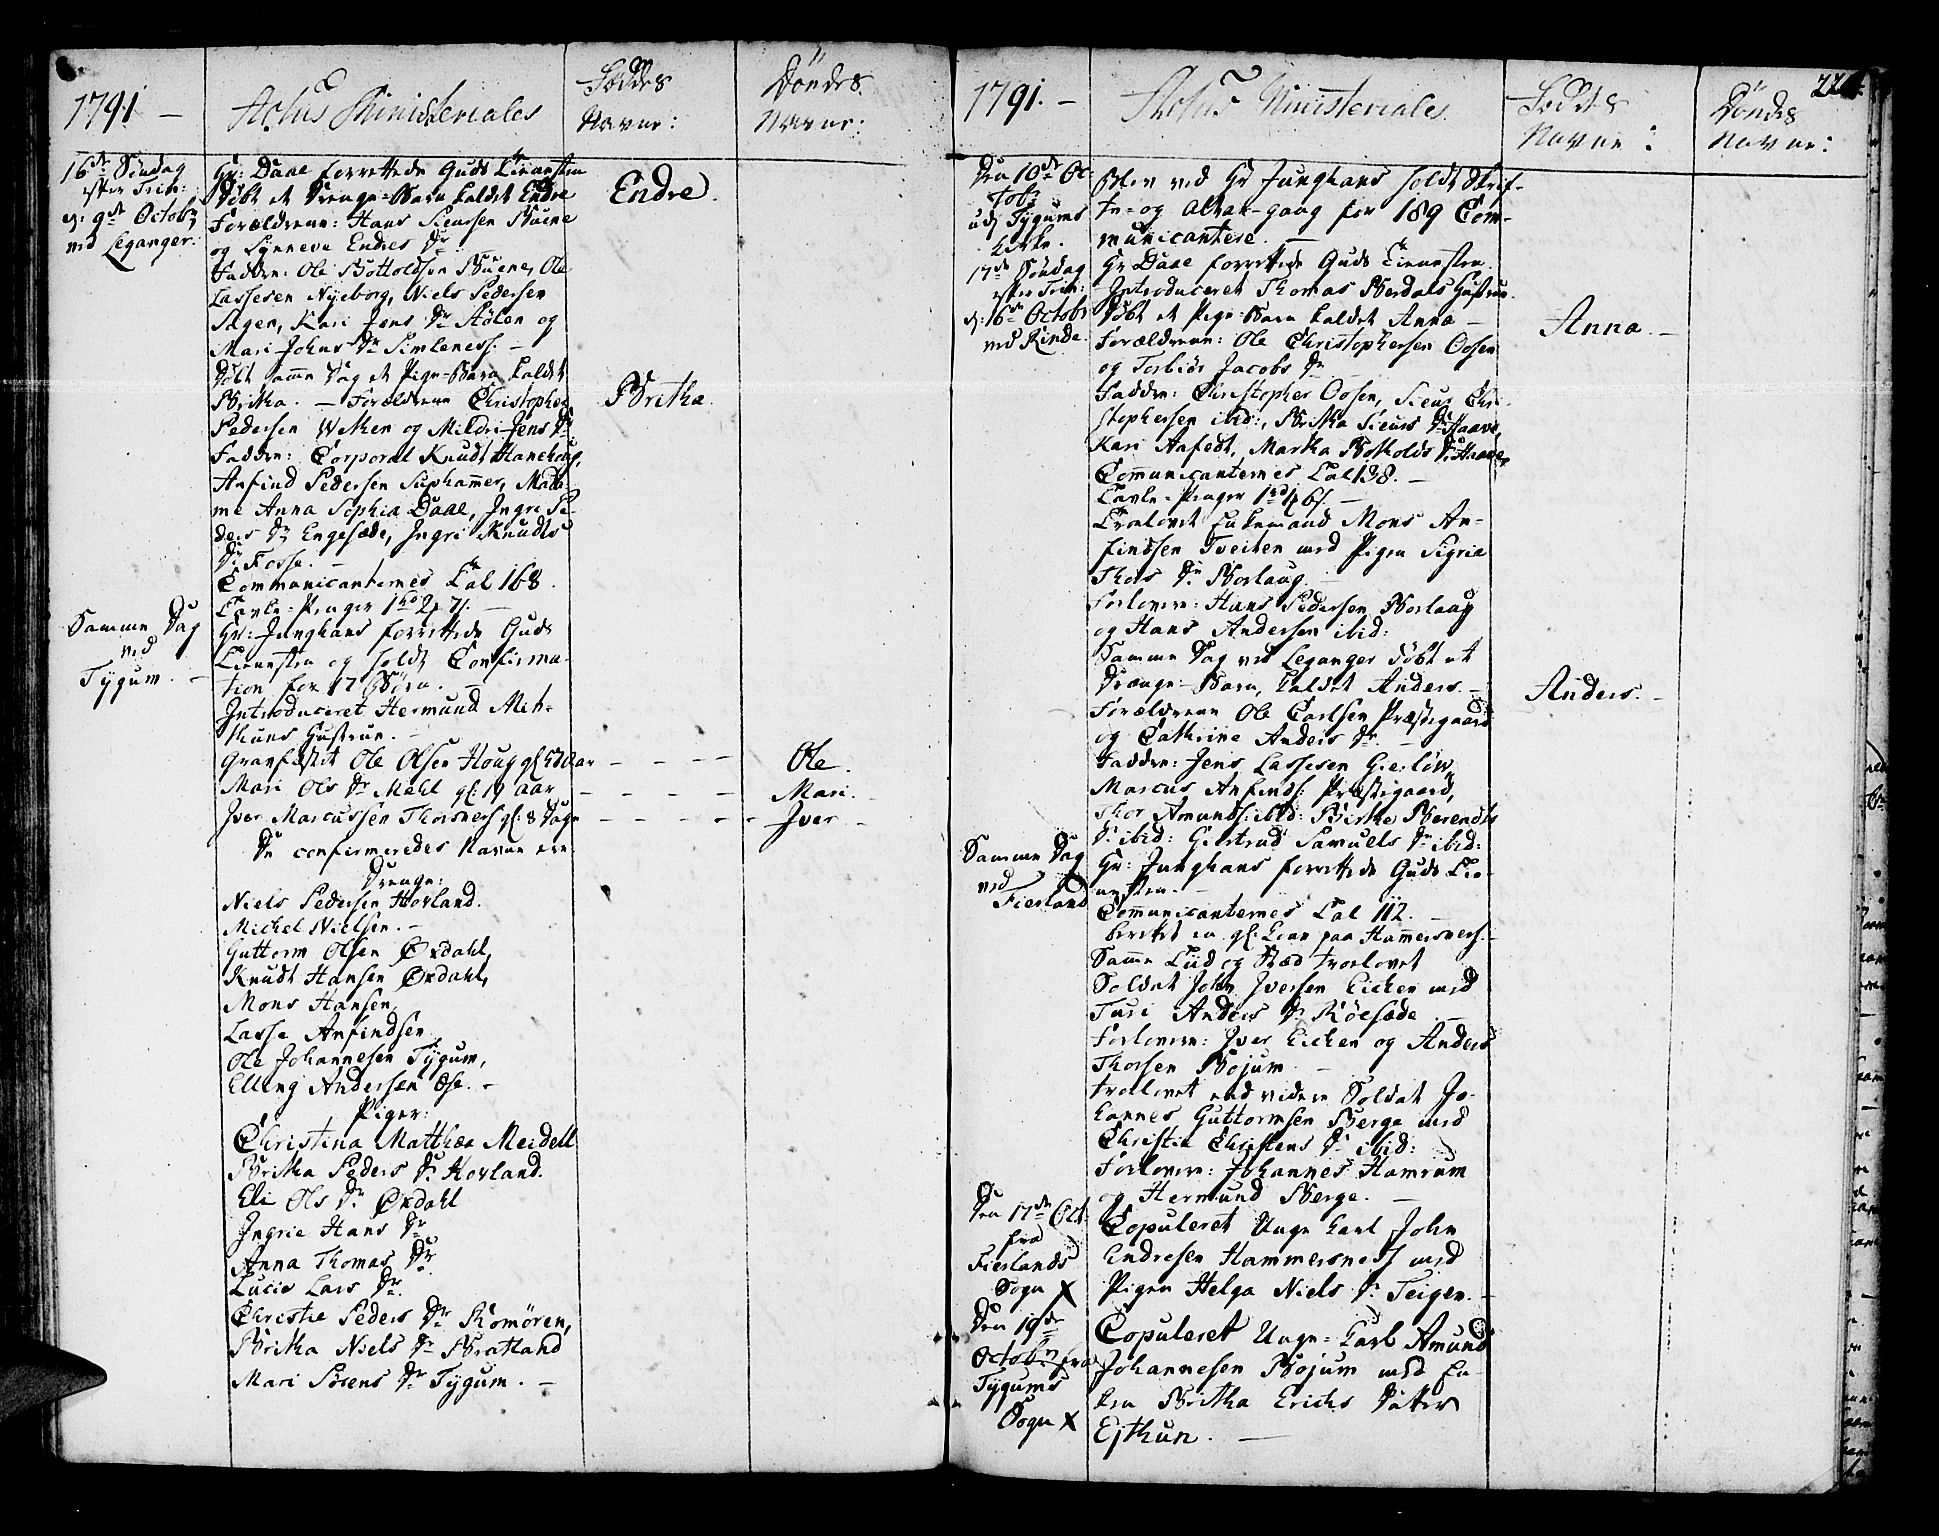 1791 —
Actus Ministeriales
Föddes
Navne:
Döndes
Navne:
16de Söndag
efter Trin:
d: 9de Octob:
ved Leganger.
Hr: Daae forrettede Guds Tienesten
Döbt et Drenge-Barn kaldet Endre
Forældrene: Hans Siursen Buene
og Synneve Endres Dr
Faddre: Ole Bottolfsen Buene, Ole
Lassesen Nyeborg, Niels Pedersen
Sagen, Kari Jens Dr Hölen og
Mari Johns Dr Simleness. —
Döbt samme Dag et Pige-Barn kaldet
Britha. — Forældrene Christopher
Pedersen Weken og Mildri Jens Dr
Faddre: Corporal Knudt Hanehoug,
Anfind Pedersen Suphamer, Mada-
me Anna Sophia Daae, Ingri Pe-
ders Dr Engesæde, Ingri Knudts
Dr Fosse. —
Communicanternes Tal 168.
Tavle-Penger 1rd 2 7s. —
Endre.
Britha.
Samme Dag
ved
Tygum. —
Hr: Junghans forrettede Guds
Tienesten og holdt Confirma-
tion for 17 Börn. —
Introduceret Hermund Meh-
thuns Hustrue. —
Gravfæstet Ole Olsen Houg gl: 57 Aar — — — — Ole.
Mari Ols Dr Mehl gl: 19 aar — — — — Mari. —
Jver Marcussen Thorsnes gl: 8 Dage — — — — Jver —
De confirmeredes Navne ere
Drenge:
Niels Pedersen Hovland.
Michel Nielsen. —
Guttorm Olsen Öxdahl,
Knudt Hansen Öxdahl,
Mons Hansen,
Lasse Anfindsen
Ole Johannesen Tygum,
Elling Andersen Ese. —
Piger:
Christina Matthæa Meidell
Britha Peders Dr Hovland.
Eli Ols Dr Öxdahl
Ingrie Hans Dr
Anna Thomas Dr
Lucie Lars Dr.
Christie Peders Dr Romören,
Britha Niels Dr Bratland
Mari Sörens Dr Tygum. —
1791. —
Actus Ministeriales.
Föddes
Navne:
Döndes
Navne:
Den 10de Oc-
tob:
udj Tygums
Kirke.
Blev ved Hr Junghans holdt Skrif-
te- og Altar-gang for 189 Com-
municantere. —
17de Söndag
efter Trin:
d: 16de Octobr
ved Rinde.
Hr Daae forrettede Guds Tienesten.
Introduceret Thomas Berdals Hustrue.
Döbt et Pige-Barn kaldet Anna —
Forældrene: Ole Christophersen Oosen
og Torbiör Jacobs Dr
Faddre: Christopher Oosen, Siur Chri-
stophersen ibid:, Britha Siurs Dr Haave,
Kari Aafedt, Martha Botholds Dr Haave,
Communicanternes Tal 138. —
Tavle-Penger 1rd 6s. —
Trolovet Enkemand Mons An-
findsen Tveiten med Pigen Sigrie
Thors Dr Borlaug. —
Forlovere: Hans Pedersen Borlaug
og Hans Andersen ibid:
Samme Dag ved Leganger döbt et
Drenge-Barn, kaldet Anders. —
Forældrene Ole Carlsen Præstegaard
og Cathrine Anders Dr. —
Faddre: Jens Lassesen Gierlöw,
Marcus Anfinds: Præstegaard,
Thor Amunds: ibid: Birthe Berendts
Dr ibid: Giertrud Samuels Dr ibid:
Anna. —
Anders. —
Samme Dag
ved
Fierland
Hr: Junghans forrettede Guds Tie-
nesten. —
Communicanternes Tal 112. —
berettet en gl: Kone paa Hammersnes. —
Samme Tiid og Stæd trolovet
Soldat John Jversen Eichen med
Turi Anders Dr Röesæde —
Forlovere: Jver Eichen og Anders
Thorsen Bojum. —
trolovet end videre Soldat Jo-
hannes Guttormsen Berge med
Christie Christens Dr ibid:
Forlovere: Johannes Hamrum
og Hermund Berge. —
Den 17de Oct:
fra
Fierlands
Sogn X
Copuleret Unge Karl John
Endresen Hammersnes med
Pigen Helga Niels Dr Teigen. —
Den 19de
Octobr: fra
Tygums
Sogn X
Copuleret Unge-Karl Amund
Johannesen Bojum med En-
ken Britha Erichs Datter
Ejthun. —